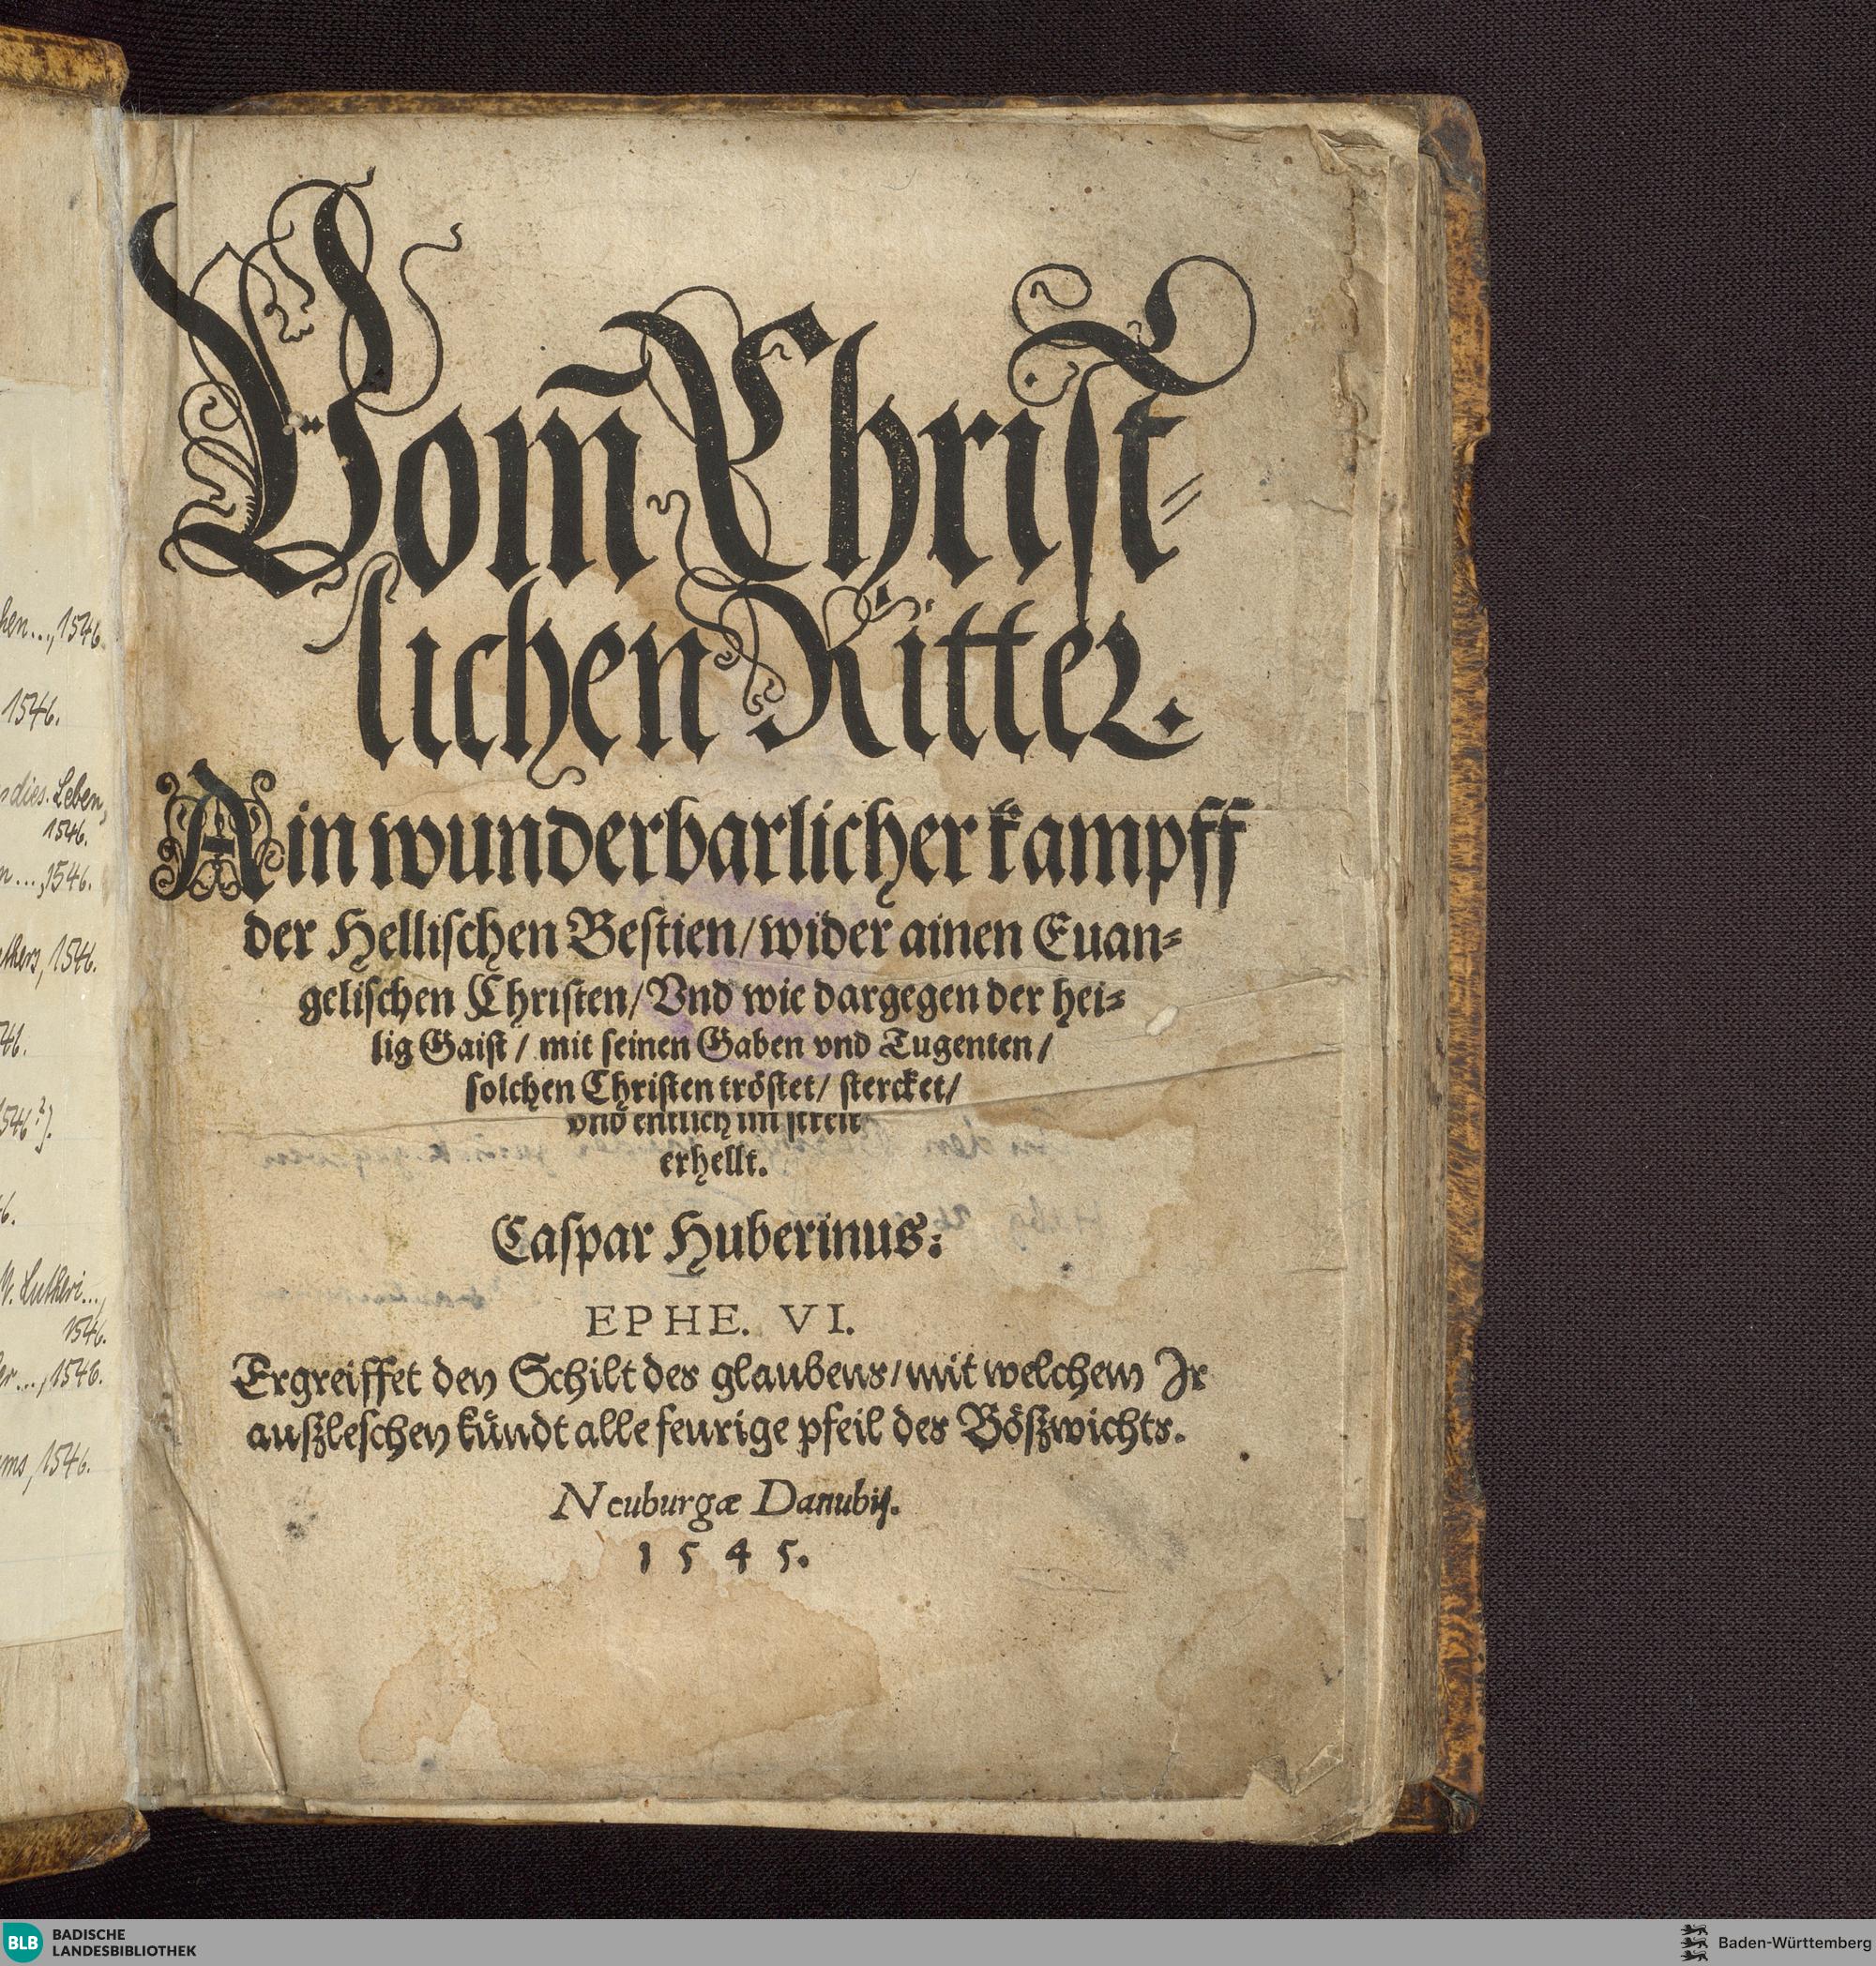 hen..., 1546.
1546.
dies. Leben,
1546.
n..., 1546.
1546.
46.
1546?).
6.
V. Lutheri...,
1546.
er..., 1546.
ms, 1546.
Vom̄ Chriſt⸗
lichen Ritter.
Ain wunderbarlicher kampff
der Helliſchen Beſtien/ wider ainen Euan⸗
geliſchen Chriſten/ Vnd wie dargegen der hei⸗
lig Gaiſt / mit ſeinen Gaben vnd Tugenten /
ſolchen Chriſten tröſtet/ ſtercket/
vnd entlich im ſtreit
erhellt.
Caſpar Huberinus:
EPHE. VI.
Ergreiffet den Schilt des glaubens/ mit welchem Jr
auſzleſchen kuͤndt alle feurige pfeil des Böſzwichts.
Neuburgæ Danubij.
1545.
BLB BADISCHE
LANDESBIBLIOTHEK
Baden-Württemberg